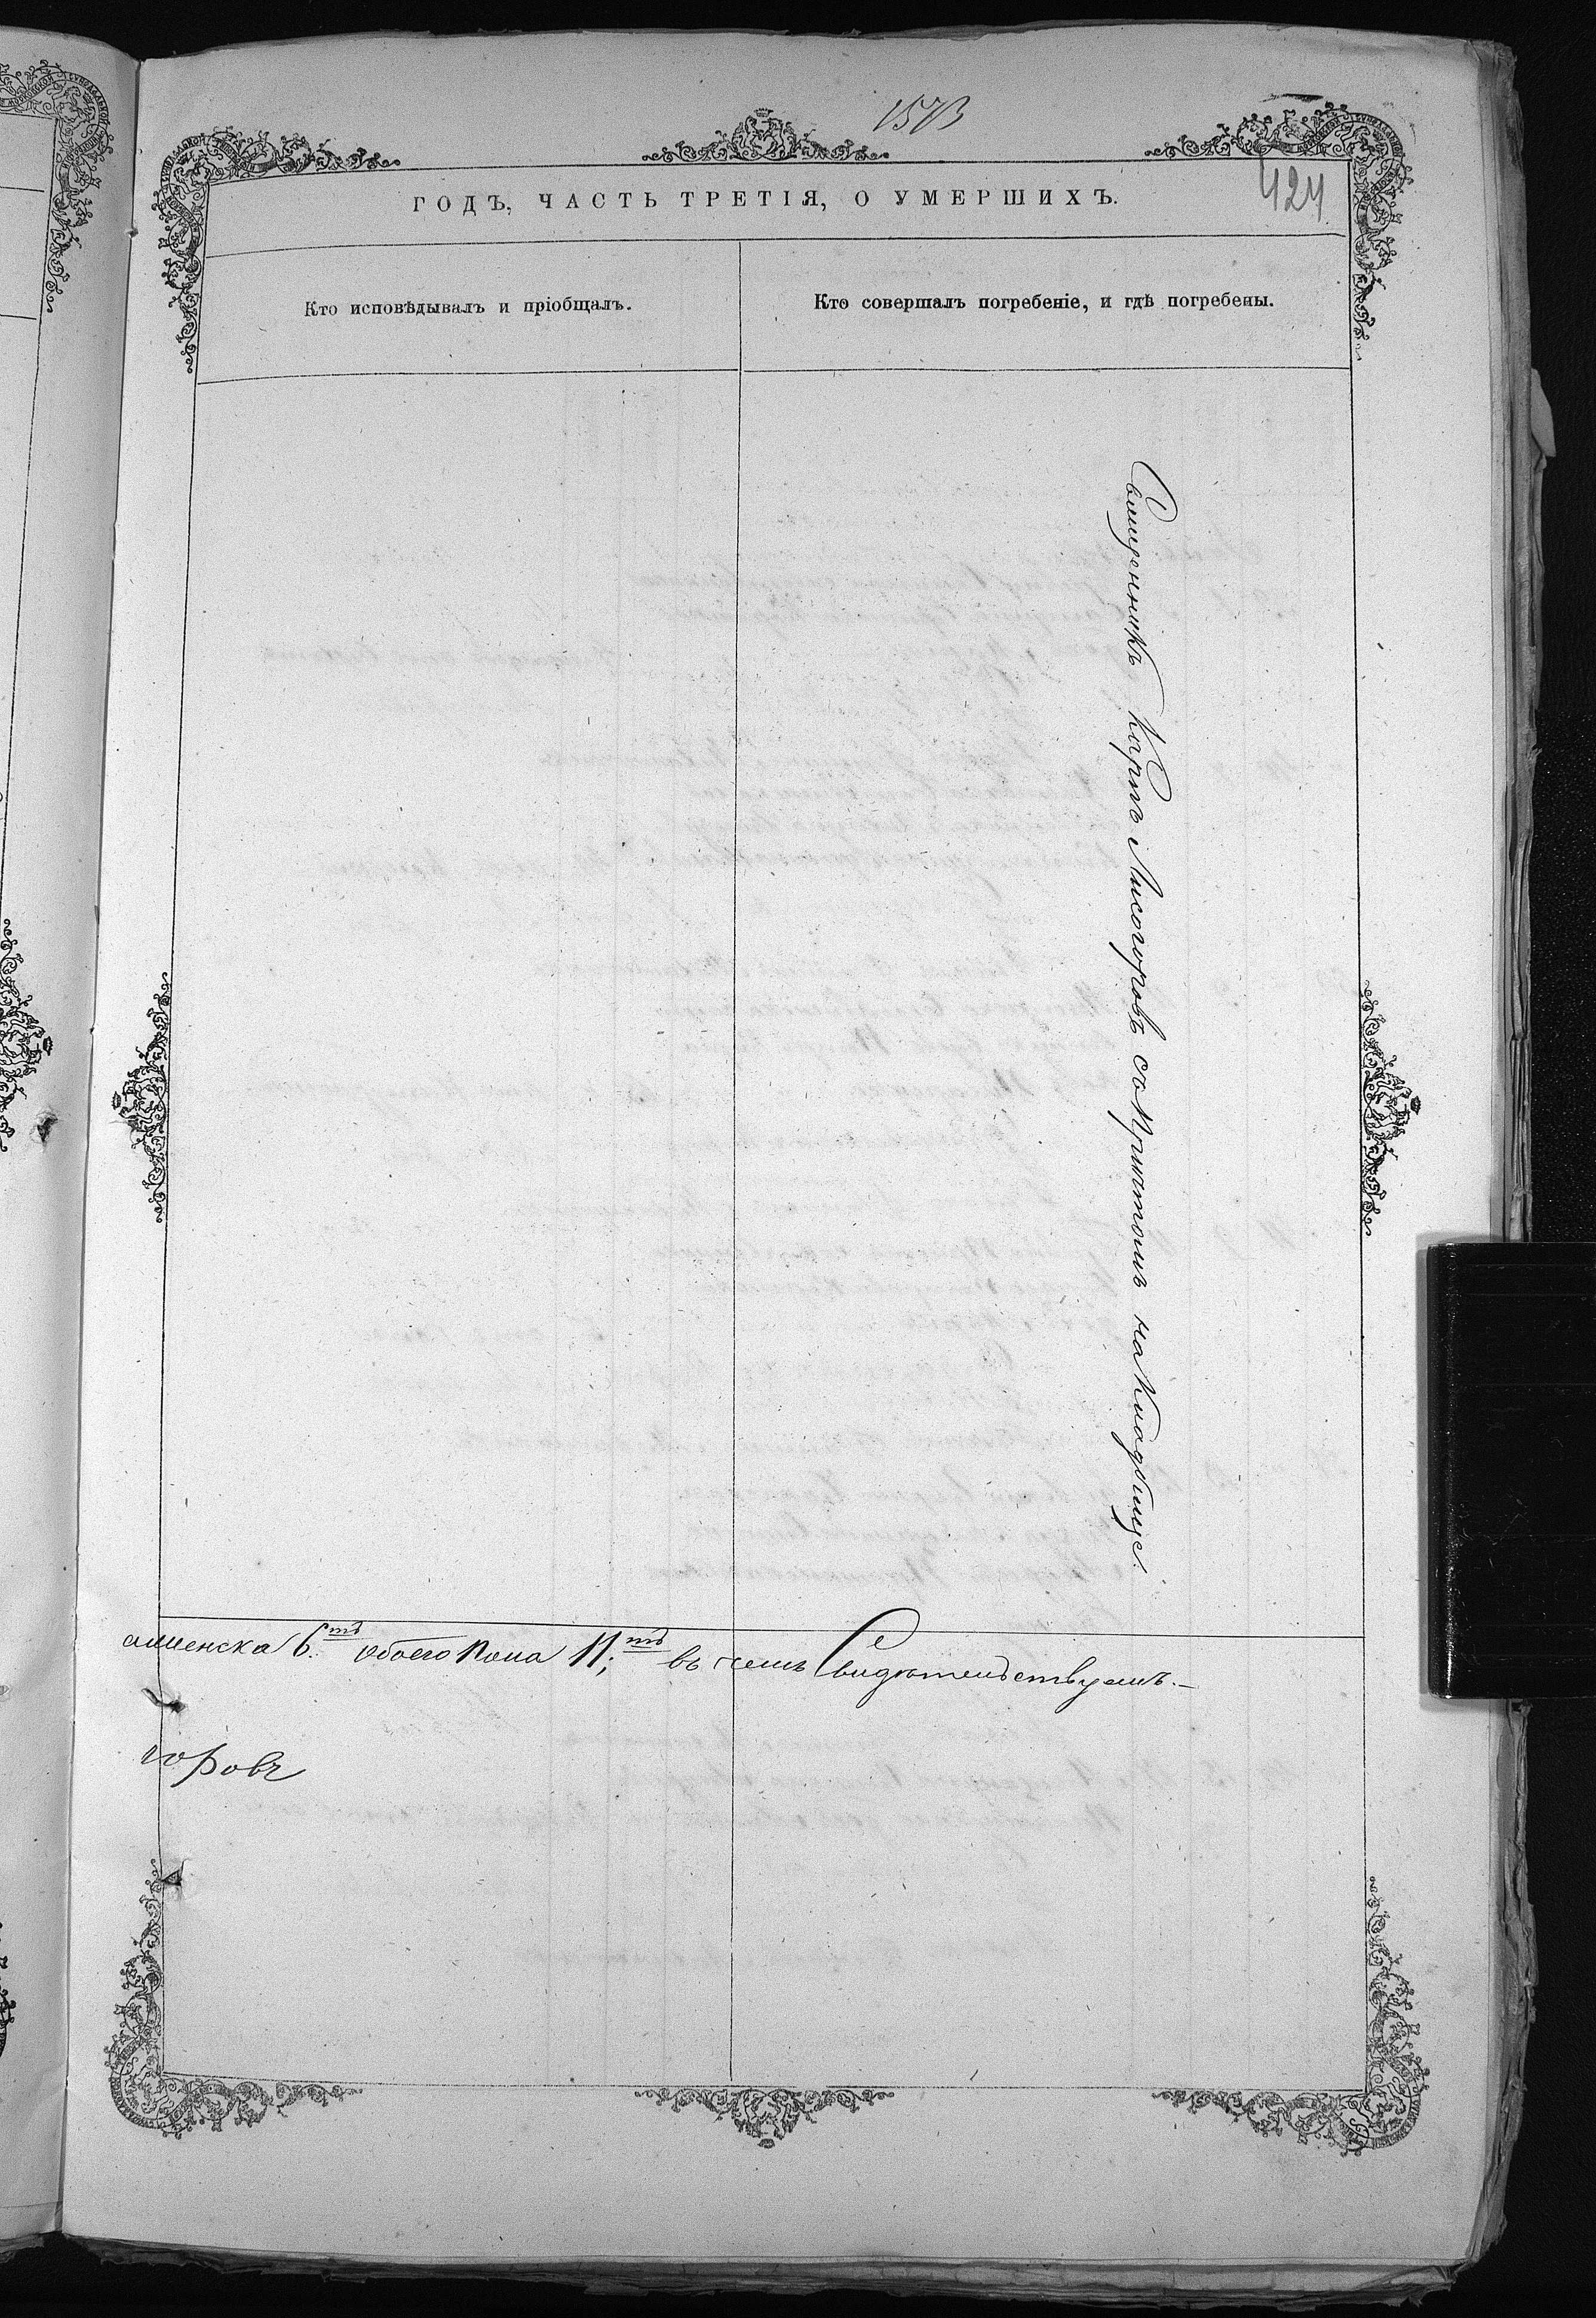 1573
424
ГОДЪ, ЧАСТЬ ТРЕТІЯ, О УМЕРШИХЪ.
Кто исповѣдывалъ и пріобщалъ.
Кто совершалъ погребеніе, и гдѣ погребены.
Священникъ Карпъ Лисогоровъ съ Причтомъ на Кладбище.
а женска 6.ть обоего Пола 11;ть въ чемъ Свидѣтельствуемъ.—
горовъ